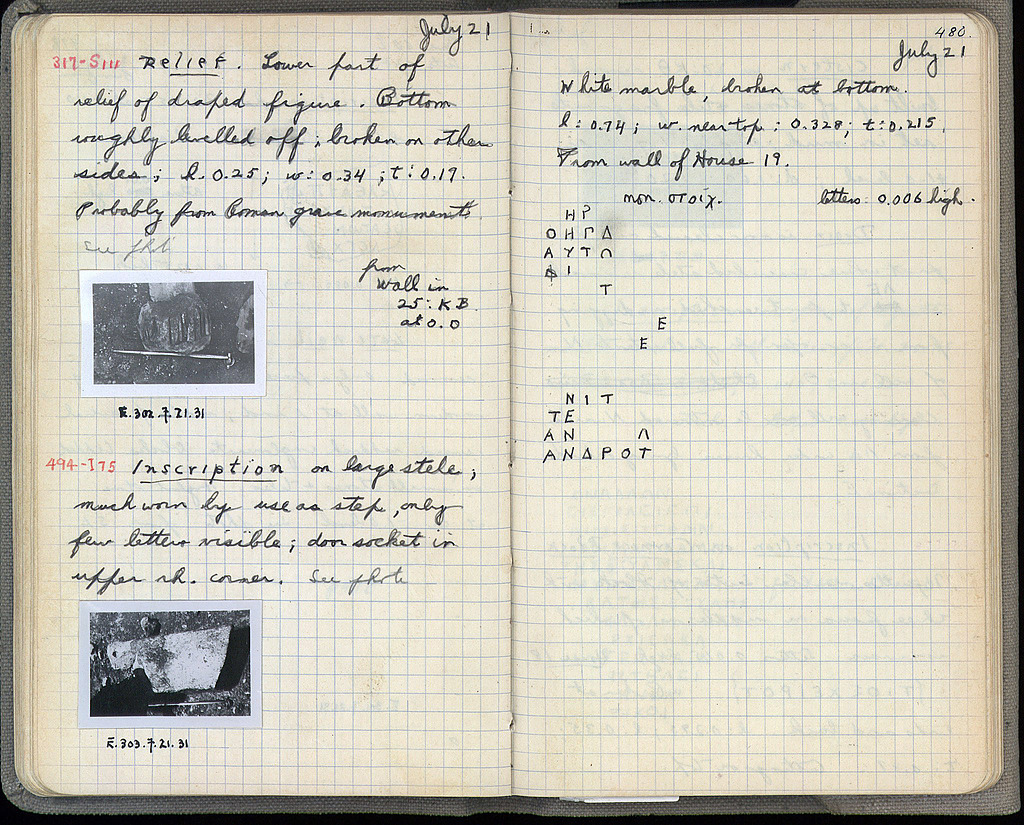 July 21
317-S111 Relief. Lower part of
relief of draped figure. Bottom
roughly levelled off; broken on other
sides; h. 0.25; w: 0.34; t: 0.17.
Probably from Roman grave monuments.
See phot
from
wall in
25:KB
at 0.0
E.302.7.21.31
494-I75 Inscription on large stele;
much worn by use as step, only
few letters visible; door socket in
upper rh. corner. See photo
E.303.7.21.31
480.
July 21
White marble, broken at bottom.
h: 0.74; w. near top: 0.328; t: 0.215.
From wall of House 19.
non. στοιχ. letters: 0.006 high.
ΗΡ
ΟΗΓΔ
ΑΥΤΟ
Ι
Τ
Ε
Ε
ΝΙΤ
ΤΕ
ΑΝ Λ
ΑΝΔΡΟΤ